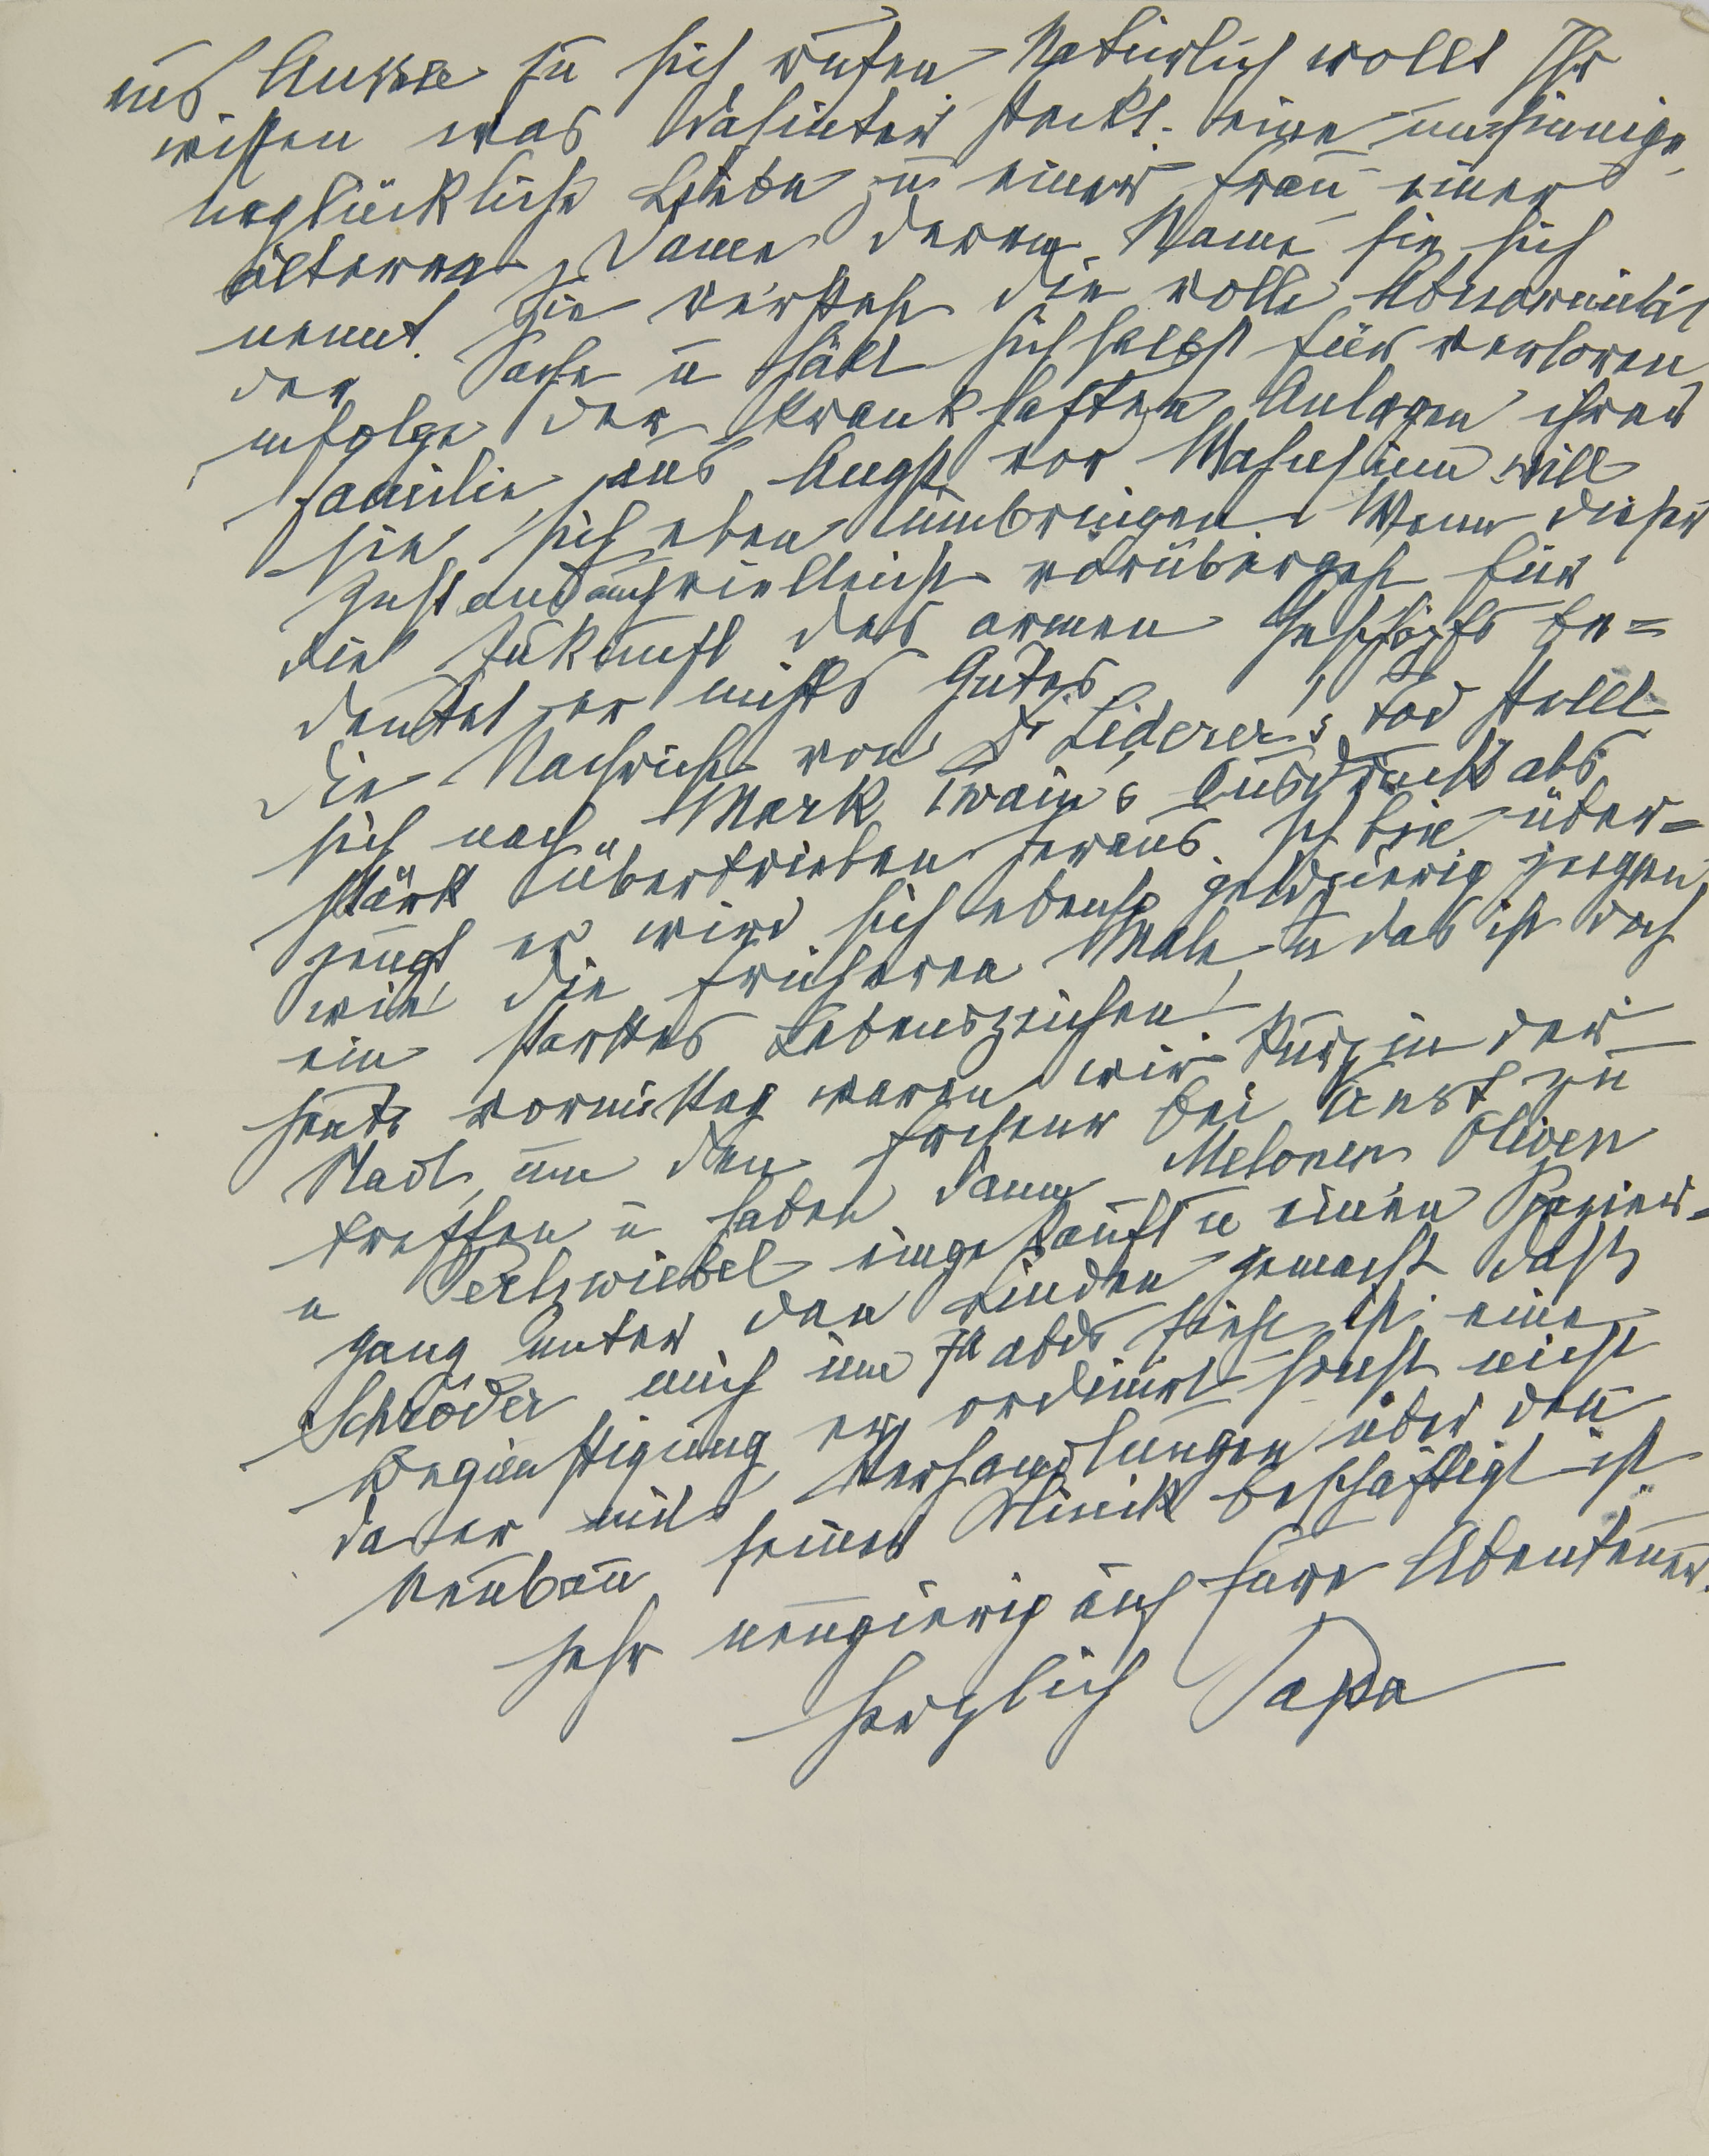 uns Ankere zu sich rufen. Natürlich wollt Ihr
wissen was dahinter steckt. eine unsinnige,
unglückliche Liebe zu einer Frau einer
älteren Dame deren Name sie sich
nennt. Sie versteht die volle Abnormität
der Sache u hält sich selbst für verloren
infolge der krankhaften Anlagen ihrer
Familie, aus Angst vor Wahnsinn will
sie sich eben umbringen. Wenn dieser
Zustand auch vielleicht vorübergeht für
die Zukunft des armen Geschöpfs be=
deutet er nichts Gutes.
Die Nachricht von Dr Lederer's Tod stellt
sich nach Mark Twain's Ausdruck als
„stark übertrieben" heraus. Ich bin über=
zeugt er wird sich ebenso geldgierig zeigen,
wie die früheren Male u das ist doch
ein starkes Lebenszeichen!
Heute vormittag waren wir kurz in der
Stadt, um den Friseur bei Anst zu
treffen u haben dann Melonen Oliven
u Perlzwiebel eingekauft u einen Spazier=
gang unter den Linden gemacht. Dass
Schröder mich um 7h abds sieht ist eine
Begünstigung, er ordinirt sonst nicht
da er mit Verhandlungen über den
Neubau seiner Klinik beschäftigt ist
Sehr neugierig auf Eure Abenteuer.
Herzlich Papa